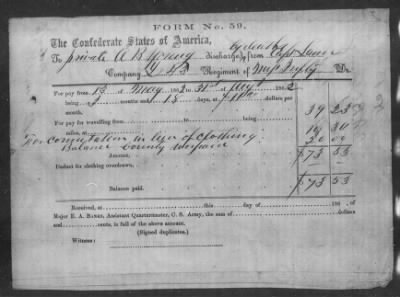 FORM No. 59.
The Confederate States of America,
To private A B Young discharged by death from Capt
Company 43 Regiment of Miss Infty
For pay from 15 May 1862 to 31 Aug 1862
being 3 months and 15 days, at 11 dollars per
month, 39 23
For pay for travelling from to
miles, at 14 30
For commutation in lieu of clothing
Balance bounty unpaid 20 00
Amount, $73 53
Deduct for clothing overdrawn,
Balance paid, $73 53
Received, at this day of 186 , of
Major E. A. BANKS, Assistant Quartermaster, C. S. Army, the sum of dollars
and cents, in full of the above amount.
(Signed duplicates.)
Witness: